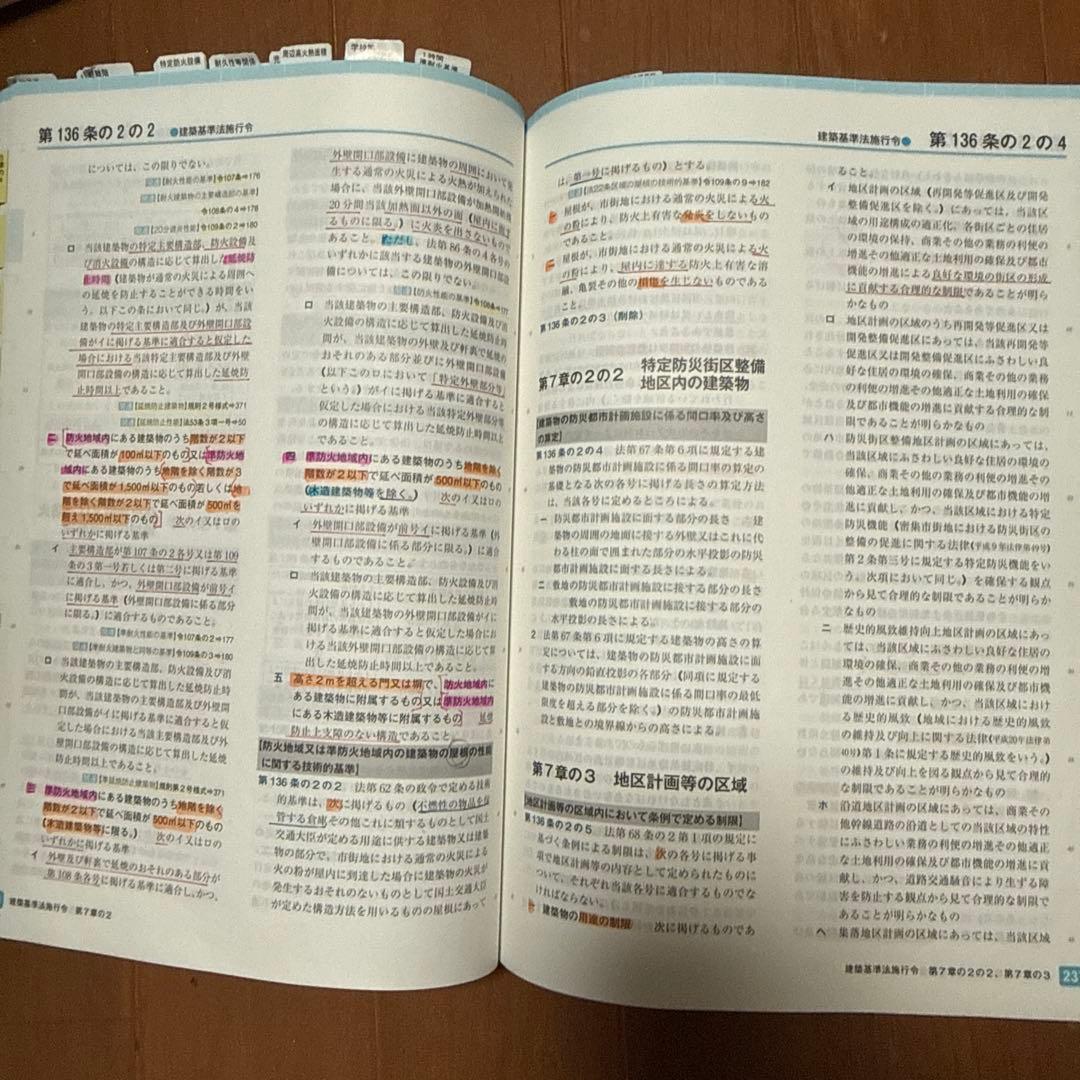 特定防火設備
耐久性等関係
周辺高火熱面積
1時間
準耐火基準
第136条の2の2 ●建築基準法施行令
については、この限りでない。
【耐火性能の基準】令107条⇒176
【耐火建築物の主要構造部の基準】
令108条の4⇒178
【20分遮炎性能】令109条の2⇒180
ロ 当該建築物の特定主要構造部、防火設備及
び消火設備の構造に応じて算出した延焼防
止時間(建築物が通常の火災による周囲へ
の延焼を防止することができる時間をい
う。以下この条において同じ。)が、当該
建築物の特定主要構造部及び外壁開口部設
備がイに掲げる基準に適合すると仮定した
場合における当該特定主要構造部及び外壁
開口部設備の構造に応じて算出した延焼防
止時間以上であること。
【延焼防止建築物】規則2号様式⇒371
【延焼防止性能】法53条3項一号⇒50
二 防火地域内にある建築物のうち階数が2以下
で延べ面積が100㎡以下のもの又は準防火地
域内にある建築物のうち地階を除く階数が3
で延べ面積が1,500㎡以下のもの若しくは地
階を除く階数が2以下で延べ面積が500㎡を
超え1,500㎡以下のもの 次のイ又はロの
いずれかに掲げる基準
イ 主要構造部が第107条の2各号又は第109
条の3第一号若しくは第二号に掲げる基準
に適合し、かつ、外壁開口部設備が前号イ
に掲げる基準(外壁開口部設備に係る部分
に限る。)に適合するものであること。
【準耐火性能の基準】令107条の2⇒177
【準耐火建築物と同等の基準】令109条の3⇒180
ロ 当該建築物の主要構造部、防火設備及び消
火設備の構造に応じて算出した延焼防止時
間が、当該建築物の主要構造部及び外壁開
口部設備がイに掲げる基準に適合すると仮
定した場合における当該主要構造部及び外
壁開口部設備の構造に応じて算出した延焼
防止時間以上であること。
【準延焼防止建築物】規則第2号様式⇒371
三 準防火地域内にある建築物のうち地階を除く
階数が2以下で延べ面積が500㎡以下のもの
(木造建築物等に限る。) 次のイ又はロの
いずれかに掲げる基準
イ 外壁及び軒裏で延焼のおそれのある部分が
第108条各号に掲げる基準に適合し、かつ、
建築基準法施行令 第7章の2
外壁開口部設備に建築物の周囲において発
生する通常の火災による火熱が加えられた
場合に、当該外壁開口部設備が加熱開始後
20分間当該加熱面以外の面(屋内に面す
るものに限る。)に火炎を出さないもので
あること。ただし、法第86条の4各号の
いずれかに該当する建築物の外壁開口部設
備については、この限りでない。
【防火性能の基準】令108条⇒177
ロ 当該建築物の主要構造部、防火設備及び消
火設備の構造に応じて算出した延焼防止時
間が、当該建築物の外壁及び軒裏で延焼の
おそれのある部分並びに外壁開口部設備
(以下このロにおいて「特定外壁部分等」
という。)がイに掲げる基準に適合すると
仮定した場合における当該特定外壁部分等
の構造に応じて算出した延焼防止時間以上
であること。
四 準防火地域内にある建築物のうち地階を除く
階数が2以下で延べ面積が500㎡以下のもの
(木造建築物等を除く。) 次のイ又はロの
いずれかに掲げる基準
イ 外壁開口部設備が前号イに掲げる基準(外
壁開口部設備に係る部分に限る。)に適合
するものであること。
ロ 当該建築物の主要構造部、防火設備及び消
火設備の構造に応じて算出した延焼防止時
間が、当該建築物の外壁開口部設備がイに
掲げる基準に適合すると仮定した場合にお
ける当該外壁開口部設備の構造に応じて算
出した延焼防止時間以上であること。
五 高さ2mを超える門又は塀で、防火地域内に
ある建築物に附属するもの又は準防火地域内
にある木造建築物等に附属するもの 延焼
防止上支障のない構造であること。
【防火地域又は準防火地域内の建築物の屋根の性能
に関する技術的基準】
第136条の2の2 法第62条の政令で定める技術
的基準は、次に掲げるもの(不燃性の物品を保
管する倉庫その他これに類するものとして国土
交通大臣が定める用途に供する建築物又は建築
物の部分で、市街地における通常の火災による
火の粉が屋内に到達した場合に建築物の火災が
発生するおそれのないものとして国土交通大臣
が定めた構造方法を用いるものの屋根にあって
建築基準法施行令● 第136条の2の4
は、第一号に掲げるもの)とする。
【法22条区域の屋根の技術的基準】令109条の9⇒182
一 屋根が、市街地における通常の火災による火
の粉により、防火上有害な発炎をしないもの
であること。
二 屋根が、市街地における通常の火災による火
の粉により、屋内に達する防火上有害な溶
融、亀裂その他の損傷を生じないものである
こと。
第136条の2の3 (削除)
第7章の2の2 特定防災街区整備
地区内の建築物
【建築物の防災都市計画施設に係る間口率及び高さ
の算定】
第136条の2の4 法第67条第6項に規定する建
築物の防災都市計画施設に係る間口率の算定の
基礎となる次の各号に掲げる長さの算定方法
は、当該各号に定めるところによる。
一 防災都市計画施設に面する部分の長さ 建
築物の周囲の地面に接する外壁又はこれに代
わる柱の面で囲まれた部分の水平投影の防災
都市計画施設に面する長さによる。
二 敷地の防災都市計画施設に接する部分の長さ
敷地の防災都市計画施設に接する部分の
水平投影の長さによる。
2 法第67条第6項に規定する建築物の高さの算
定については、建築物の防災都市計画施設に面
する方向の鉛直投影の各部分(同項に規定する
建築物の防災都市計画施設に係る間口率の最低
限度を超える部分を除く。)の防災都市計画施
設と敷地との境界線からの高さによる。
第7章の3 地区計画等の区域
【地区計画等の区域内において条例で定める制限】
第136条の2の5 法第68条の2第1項の規定に
基づく条例による制限は、次の各号に掲げる事
項で地区計画等の内容として定められたものに
ついて、それぞれ当該各号に適合するものでな
ければならない。
一 建築物の用途の制限 次に掲げるものであ
ること。
イ 地区計画の区域(再開発等促進区及び開発
整備促進区を除く。)にあっては、当該区
域の用途構成の適正化、各街区ごとの住居
の環境の保持、商業その他の業務の利便の
増進その他適正な土地利用の確保及び都市
機能の増進による良好な環境の街区の形成
に貢献する合理的な制限であることが明ら
かなもの
ロ 地区計画の区域のうち再開発等促進区又は
開発整備促進区にあっては、当該再開発等
促進区又は開発整備促進区にふさわしい良
好な住居の環境の確保、商業その他の業務
の利便の増進その他適正な土地利用の確保
及び都市機能の増進に貢献する合理的な制
限であることが明らかなもの
ハ 防災街区整備地区計画の区域にあっては、
当該区域にふさわしい良好な住居の環境の
確保、商業その他の業務の利便の増進その
他適正な土地利用の確保及び都市機能の増
進に貢献し、かつ、当該区域における特定
防災機能(密集市街地における防災街区の
整備の促進に関する法律(平成9年法律第49号)
第2条第三号に規定する特定防災機能をい
う。次項において同じ。)を確保する観点
から見て合理的な制限であることが明らか
なもの
ニ 歴史的風致維持向上地区計画の区域にあっ
ては、当該区域にふさわしい良好な住居の
環境の確保、商業その他の業務の利便の増
進その他適正な土地利用の確保及び都市機
能の増進に貢献し、かつ、当該区域におけ
る歴史的風致(地域における歴史的風致
の維持及び向上に関する法律(平成20年法律第
40号)第1条に規定する歴史的風致をいう。)
の維持及び向上を図る観点から見て合理的
な制限であることが明らかなもの
ホ 沿道地区計画の区域にあっては、商業その
他幹線道路の沿道としての当該区域の特性
にふさわしい業務の利便の増進その他適正
な土地利用の確保及び都市機能の増進に貢
献し、かつ、道路交通騒音により生ずる障
害を防止する観点から見て合理的な制限で
あることが明らかなもの
ヘ 集落地区計画の区域にあっては、当該区域
建築基準法施行令 第7章の2の2、第7章の3